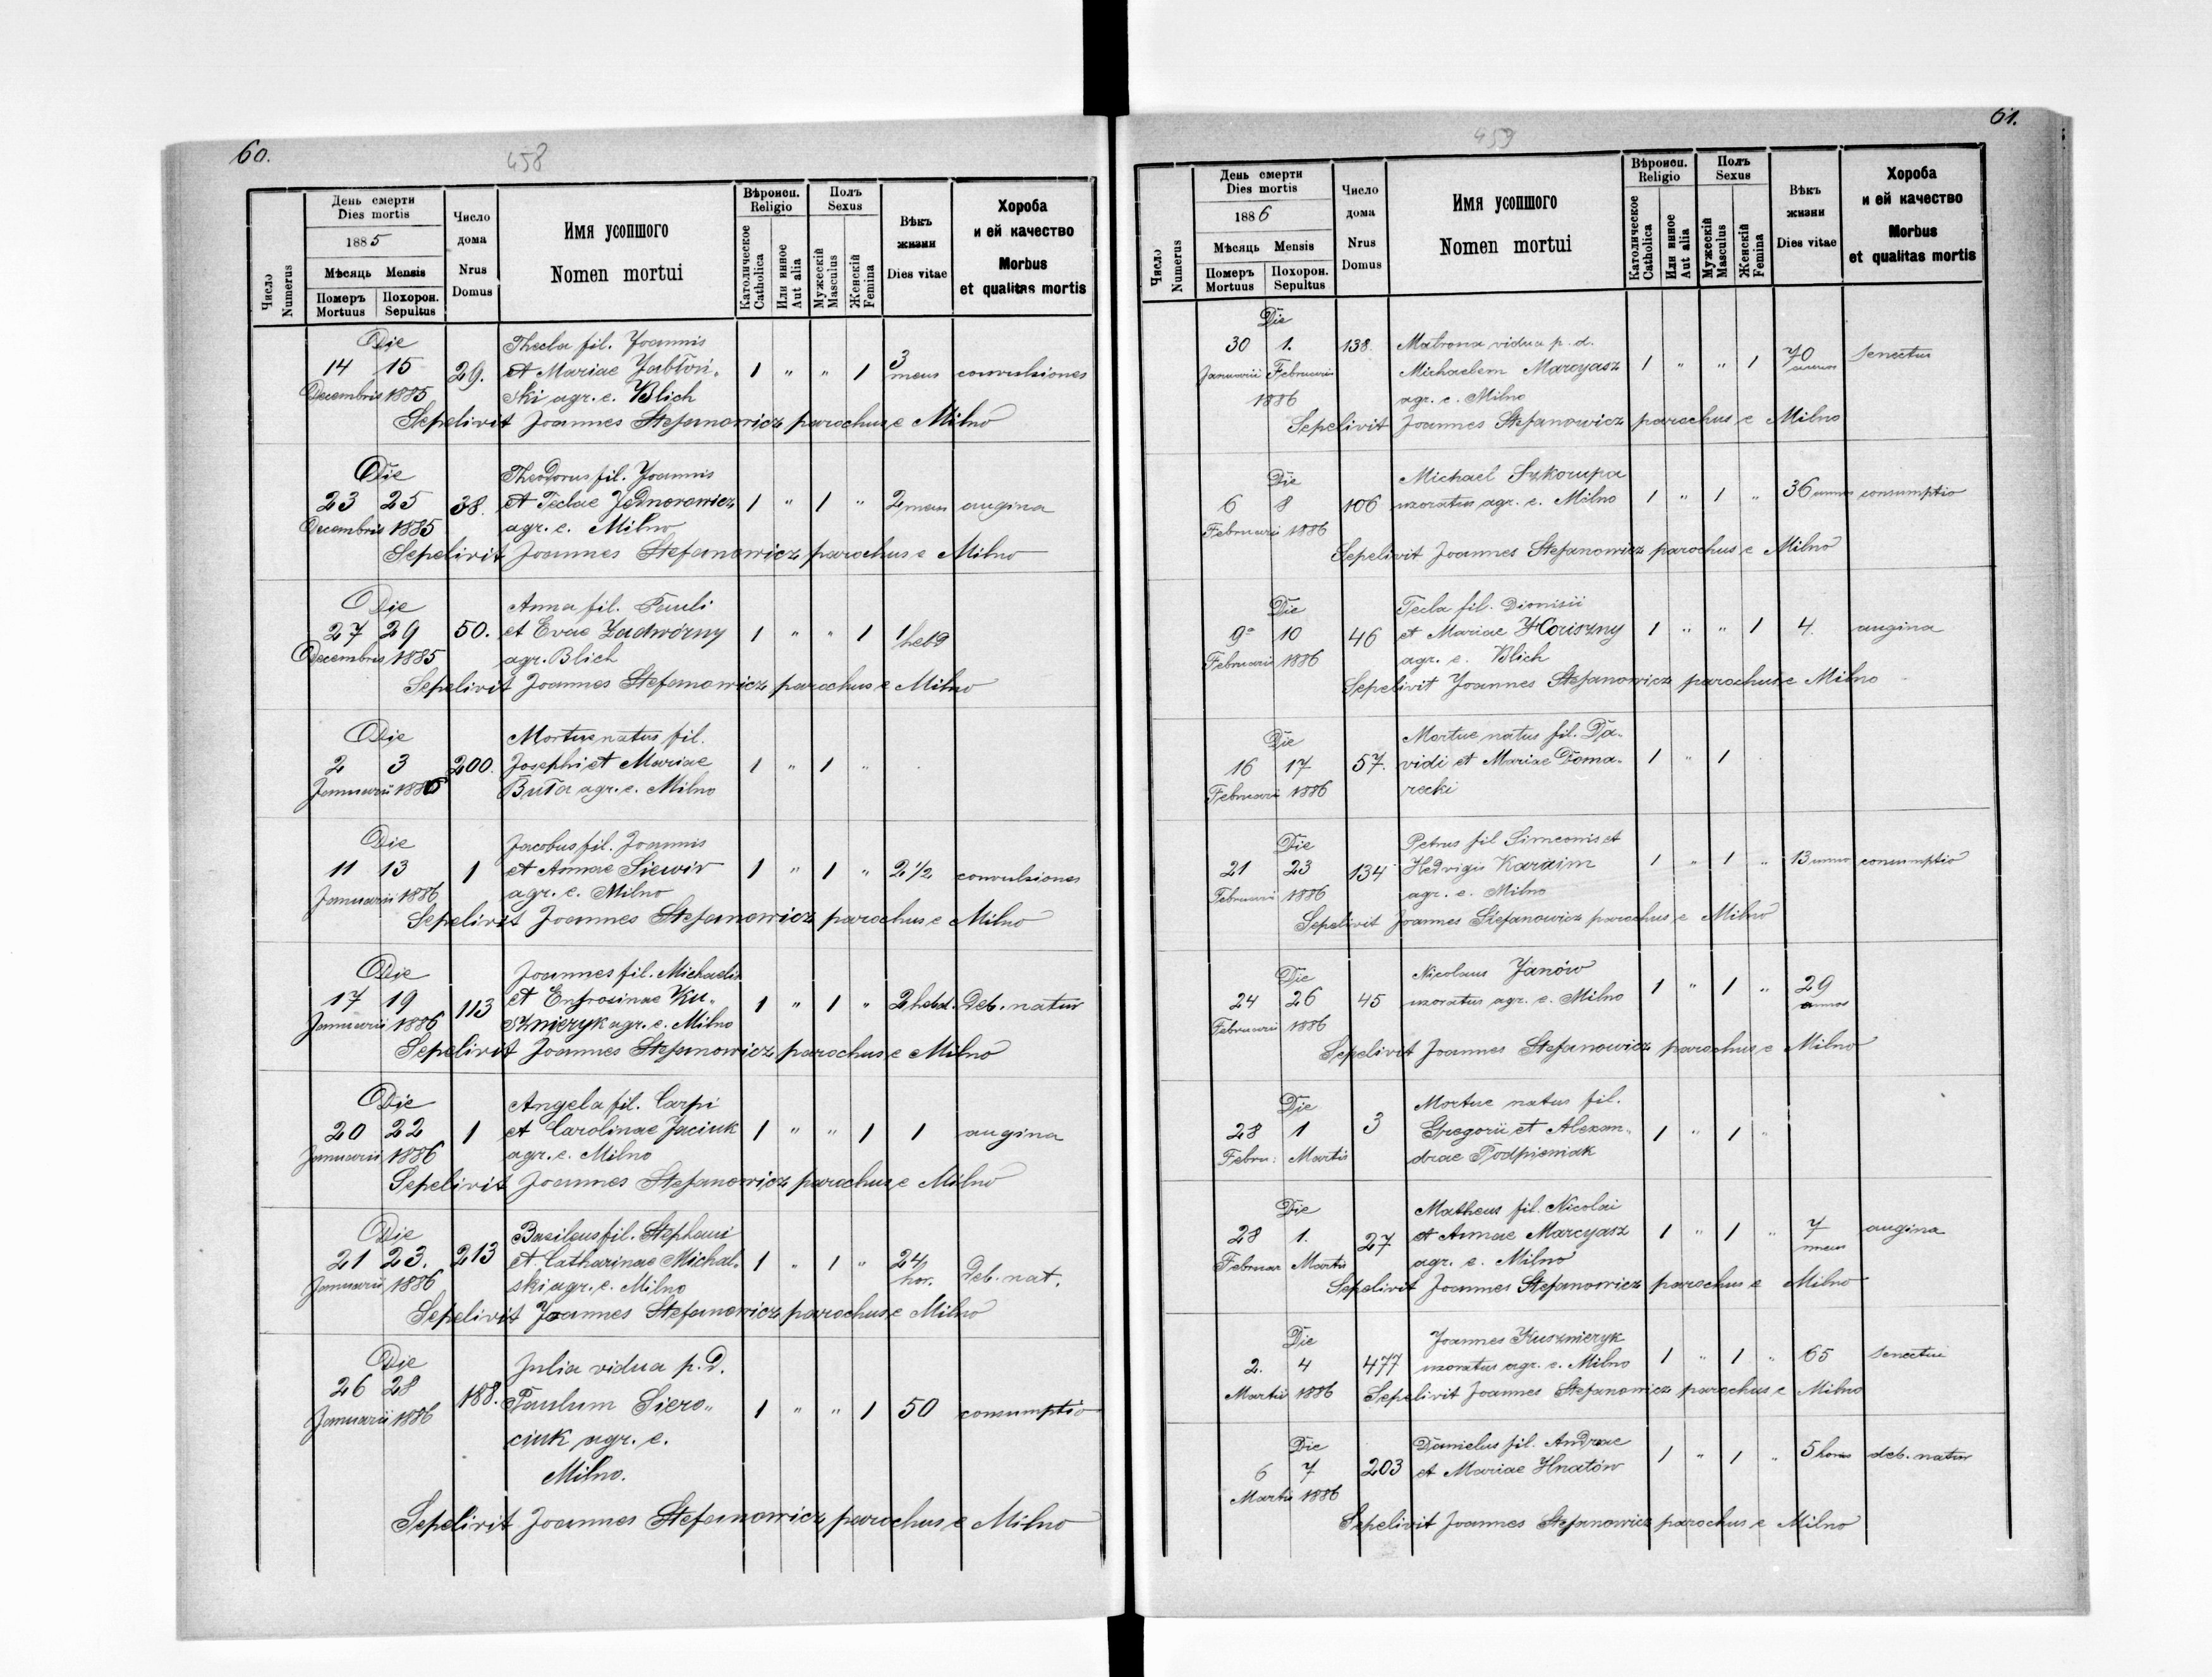 60.
458
Число
Numerus
День смерти
Dies mortis
1885
Мѣсяць Mensis
Померъ Похорон.
Mortuus Sepultus
Число
дома
Nrus
Domus
Имя усопшого
Nomen mortui
Вѣроисп.
Religio
Католическое
Catholica
Или инное
Aut alia
Полъ
Sexus
Мужескій
Masculus
Женскій
Femina
Вѣкъ
жизни
Dies vitae
Хороба
и ей качество
Morbus
et qualitas mortis
Die Thecla fil. Joannis
14 15 29. et Mariae Jabłoń- 1 " " 1 3 mens convulsiones
Decembris 1885 ski agr. e. Blich
Sepelivit Joannes Stefanowicz parochus e Milno
Die Theodorus fil. Joannis
23 25 38. et Teclae Jednorowicz 1 " 1 " 2 mens angina
Decembris 1885 agr. e. Milno
Sepelivit Joannes Stefanowicz parochus e Milno
Die Anna fil. Pauli
27 29 50. et Evae Zadwórny 1 " " 1 1 hebd
Decembris 1885 agr. Blich
Sepelivit Joannes Stefanowicz parochus e Milno
Die Mortue natus fil.
2 3 200. Josephi et Mariae 1 " 1 "
Januarii 1886 Buła agr. e. Milno
Die Jacobus fil. Joannis
11 13 1 et Annae Siewir 1 " 1 " 2 1/2 convulsiones
Januarii 1886 agr. e. Milno
Sepelivit Joannes Stefanowicz parochus e Milno
Die Joannes fil. Michaelis
17 19 113 et Enfrosinae Ku- 1 " 1 " 2 hebd. Deb. natur
Januarii 1886 sznieryk agr. e. Milno
Sepelivit Joannes Stefanowicz parochus e Milno
Die Angela fil. Carpi
20 22 1 et Carolinae Jaciuk 1 " " 1 1 angina
Januarii 1886 agr. e. Milno
Sepelivit Joannes Stefanowicz parochus e Milno
Die Basileus fil. Stephani
21 23. 213 et Catharinae Michal- 1 " 1 " 24 hor. Deb. nat.
Januarii 1886 ski agr. e. Milno
Sepelivit Joannes Stefanowicz parochus e Milno
Die Julia vidua p. d.
26 28 188. Paulum Siero- 1 " " 1 50 consumptio
Januarii 1886 ciuk agr. e.
Milno.
Sepelivit Joannes Stefanowicz parochus e Milno
61.
459
Число
Numerus
День смерти
Dies mortis
1886
Мѣсяць Mensis
Померъ Похорон.
Mortuus Sepultus
Число
дома
Nrus
Domus
Имя усопшого
Nomen mortui
Вѣроисп.
Religio
Католическое
Catholica
Или инное
Aut alia
Полъ
Sexus
Мужескій
Masculus
Женскій
Femina
Вѣкъ
жизни
Dies vitae
Хороба
и ей качество
Morbus
et qualitas mortis
Die
30 1. 138. Matrona vidua p. d.
Januarii Februarii Michaelem Marcyasz 1 " " 1 70 annos senectus
1886 agr. e. Milno
Sepelivit Joannes Stefanowicz parochus e Milno
Die Michael Szkorupa
6 8 106 uxoratus agr. e. Milno 1 " 1 " 36 annos consumptio
Februarii 1886
Sepelivit Joannes Stefanowicz parochus e Milno
Die Tecla fil. Dionisii
9 10 46 et Mariae 1 " " 1 4. angina
Februarii 1886 agr. e. Blich
Sepelivit Joannes Stefanowicz parochus e Milno
Die Mortue natus fil. Da-
16 17 57. vidi et Mariae Doma- 1 " 1
Februarii 1886 recki
Die Petrus fil Simeonis et
21 23 134 Hedvigis Karaim 1 " 1 " 13 annos consumptio
Februarii 1886 agr. e. Milno
Sepelivit Joannes Stefanowicz parochus e Milno
Die Nicolaus Janów
24 26 45 uxoratus agr. e. Milno 1 " 1 " 29 annos
Februarii 1886
Sepelivit Joannes Stefanowicz parochus e Milno
Die Mortue natus fil.
28 1 3 Gregorii et Alexan- 1 " 1 "
Febru: Martis drae Podpieniak
Die Matheus fil. Nicolai
28 1. 27 et Annae Marcyasz 1 " 1 " 7 mens angina
Februar Martis agr. e. Milno
Sepelivit Joannes Stefanowicz parochus e Milno
Die Joannes Kusznieryk
2. 4 477 uxoratus agr. e. Milno 1 " 1 " 65 senectus
Martii 1886 Sepelivit Joannes Stefanowicz parochus e Milno
Die Danielus fil. Andreae
6 7 203 et Mariae Hnatów 1 " 1 " 5 horas deb. natur
Martis 1886
Sepelivit Joannes Stefanowicz parochus e Milno